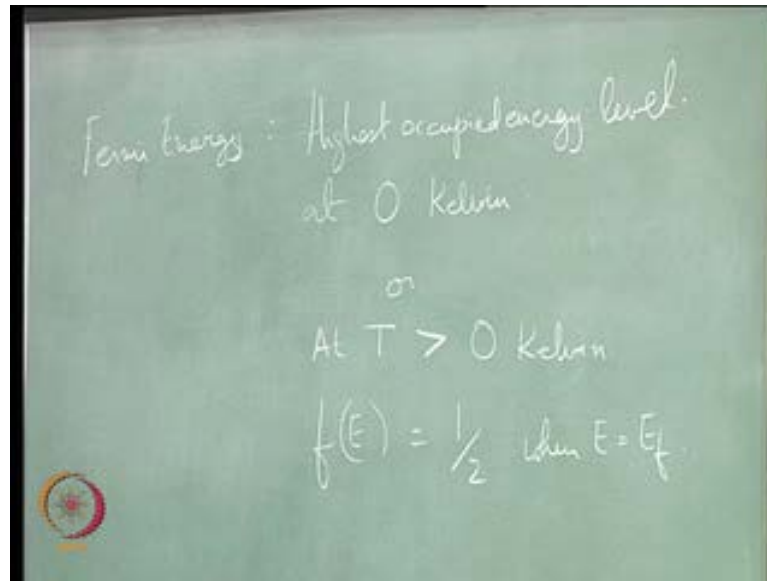 Fermi Energy : Highest occupied energy level.
at 0 Kelvin
or
At T > 0 Kelvin
f(E) = 1/2 when E = Ef